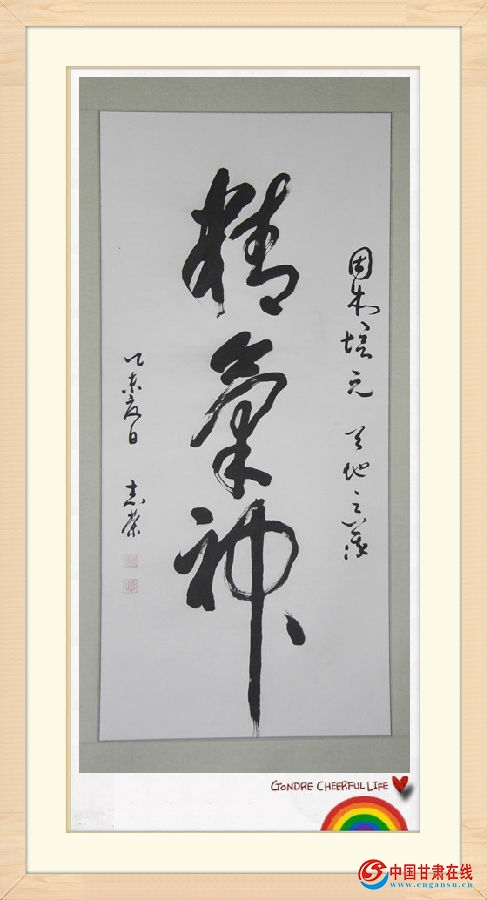 固本培元 天地之
精氣神
乙未夏日 志榮
GONDRE CHEERFUL LIFE
中国甘肃在线
www.cngansu.cn